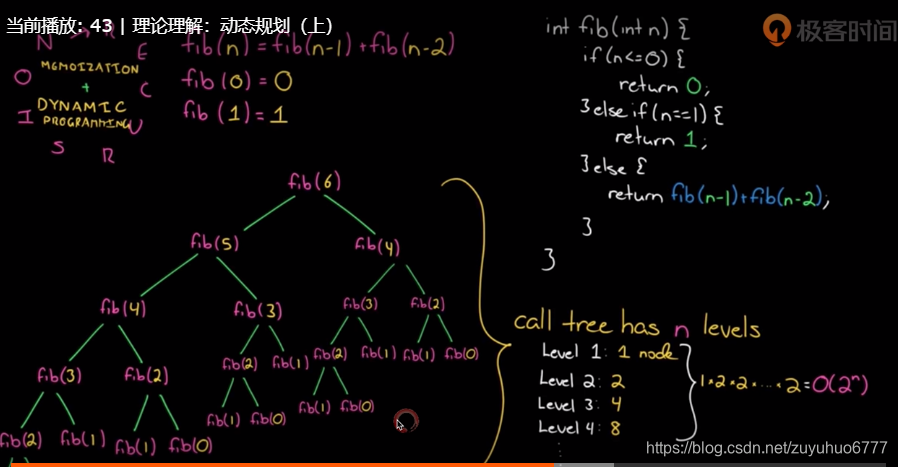 当前播放: 43 | 理论理解：动态规划（上）
极客时间
N O I S R U C E R
MEMOIZATION
+
DYNAMIC
PROGRAMMING
fib(n) = fib(n-1) + fib(n-2)
fib(0) = 0
fib(1) = 1
int fib(int n) {
if(n<=0) {
return 0;
}else if(n==1) {
return 1;
}else {
return fib(n-1)+fib(n-2);
}
}
fib(6)
fib(5) fib(4)
fib(4) fib(3) fib(3) fib(2)
fib(3) fib(2) fib(2) fib(1) fib(2) fib(1) fib(1) fib(0)
fib(2) fib(1) fib(1) fib(0) fib(1) fib(0) fib(1) fib(0)
call tree has n levels
Level 1: 1 node
Level 2: 2
Level 3: 4
Level 4: 8
1*2*2*....*2=O(2ⁿ)
https://blog.csdn.net/zuyuhuo6777